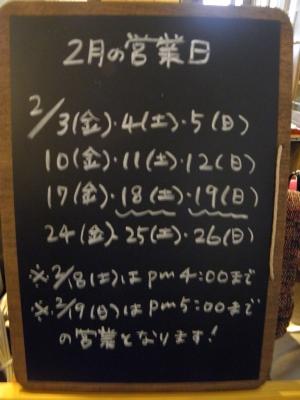 2月の営業日
2/3(金)・4(土)・5(日)
10(金)・11(土)・12(日)
17(金)・18(土)・19(日)
24(金)・25(土)・26(日)
※2/18(土)はpm4:00まで
※2/19(日)はpm5:00まで
の営業となります!